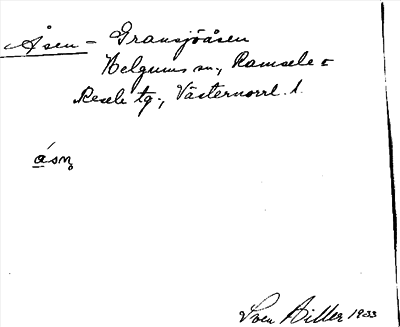 Åsen - Gransjöåsen
Helgums sn, Ramsele o
Resele tg., Västernorrl. l.
åsn̥
Sven Hiller 1933